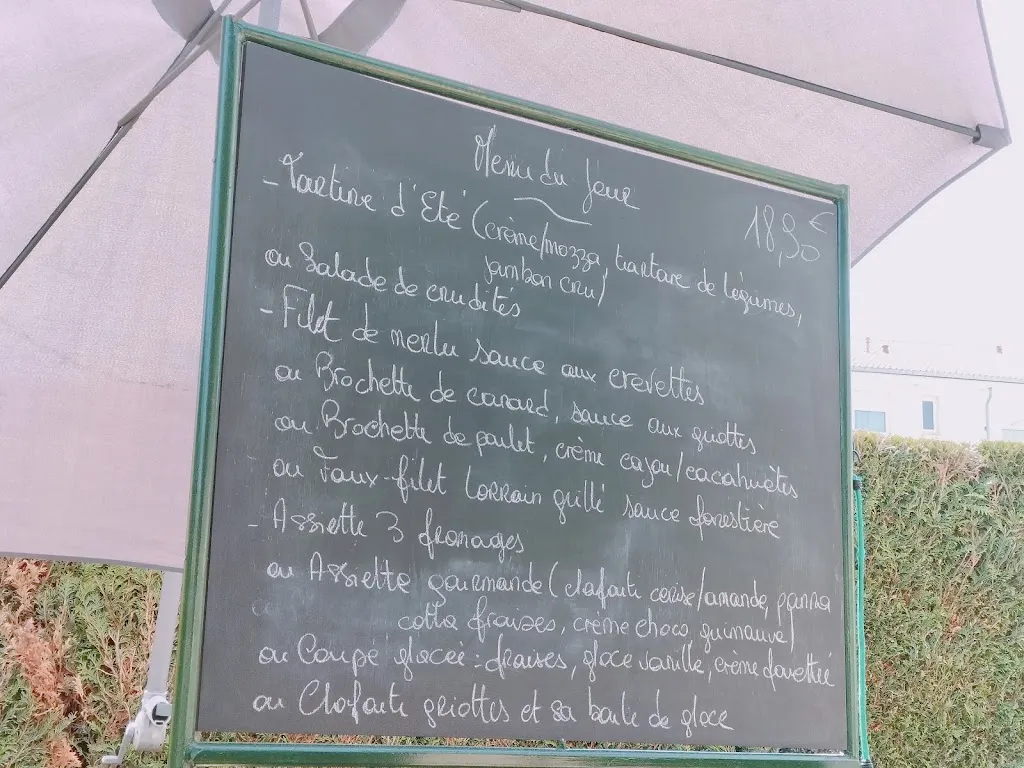 Menu du Jour
18,90€
- Tartine d'Eté (crème/mozza, tartare de légumes,
jambon cru)
ou Salade de crudités
- Filet de merlu sauce aux crevettes
ou Brochette de canard, sauce aux griottes
ou Brochette de poulet, crème cajou/cacahuètes
ou Faux-filet Lorrain grillé sauce forestière
- Assiette 3 fromages
ou Assiette gourmande (clafoutis cerise/amande, panna
cotta fraises, crème choco, guimauve)
ou Coupe glacée : fraises, glace vanille, crème fouettée
ou Clafoutis griottes et sa boule de glace